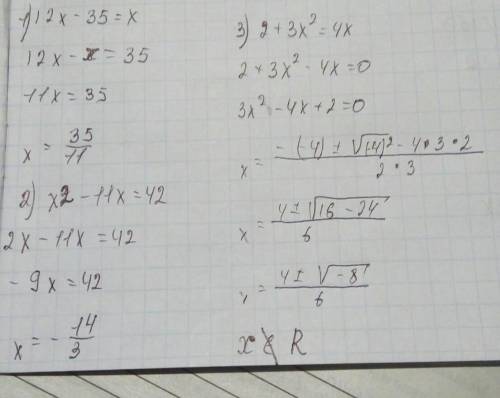 1) 12x - 35 = x
12x - x = 35
11x = 35
x = 35/11
2) x2 - 11x = 42
2x - 11x = 42
- 9x = 42
x = - 14/3
3) 2 + 3x² = 4x
2 + 3x² - 4x = 0
3x² - 4x + 2 = 0
x = (- (-4) ± √(-4)² - 4 • 3 • 2) / (2 • 3)
x = (4 ± √16 - 24) / 6
x = (4 ± √-8) / 6
x ∉ R